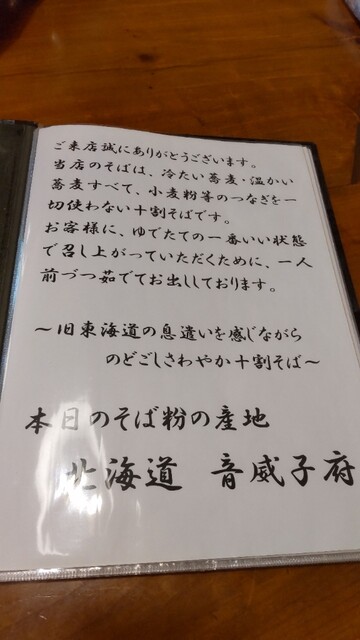 ご来店誠にありがとうございます。
当店のそばは、冷たい蕎麦・温かい
蕎麦すべて、小麦粉等のつなぎを一
切使わない十割そばです。
お客様に、ゆでたての一番いい状態
で召し上がっていただくために、一人
前づつ茹でてお出ししております。
～旧東海道の息遣いを感じながら
のどごしさわやか十割そば～
本日のそば粉の産地
北海道　音威子府